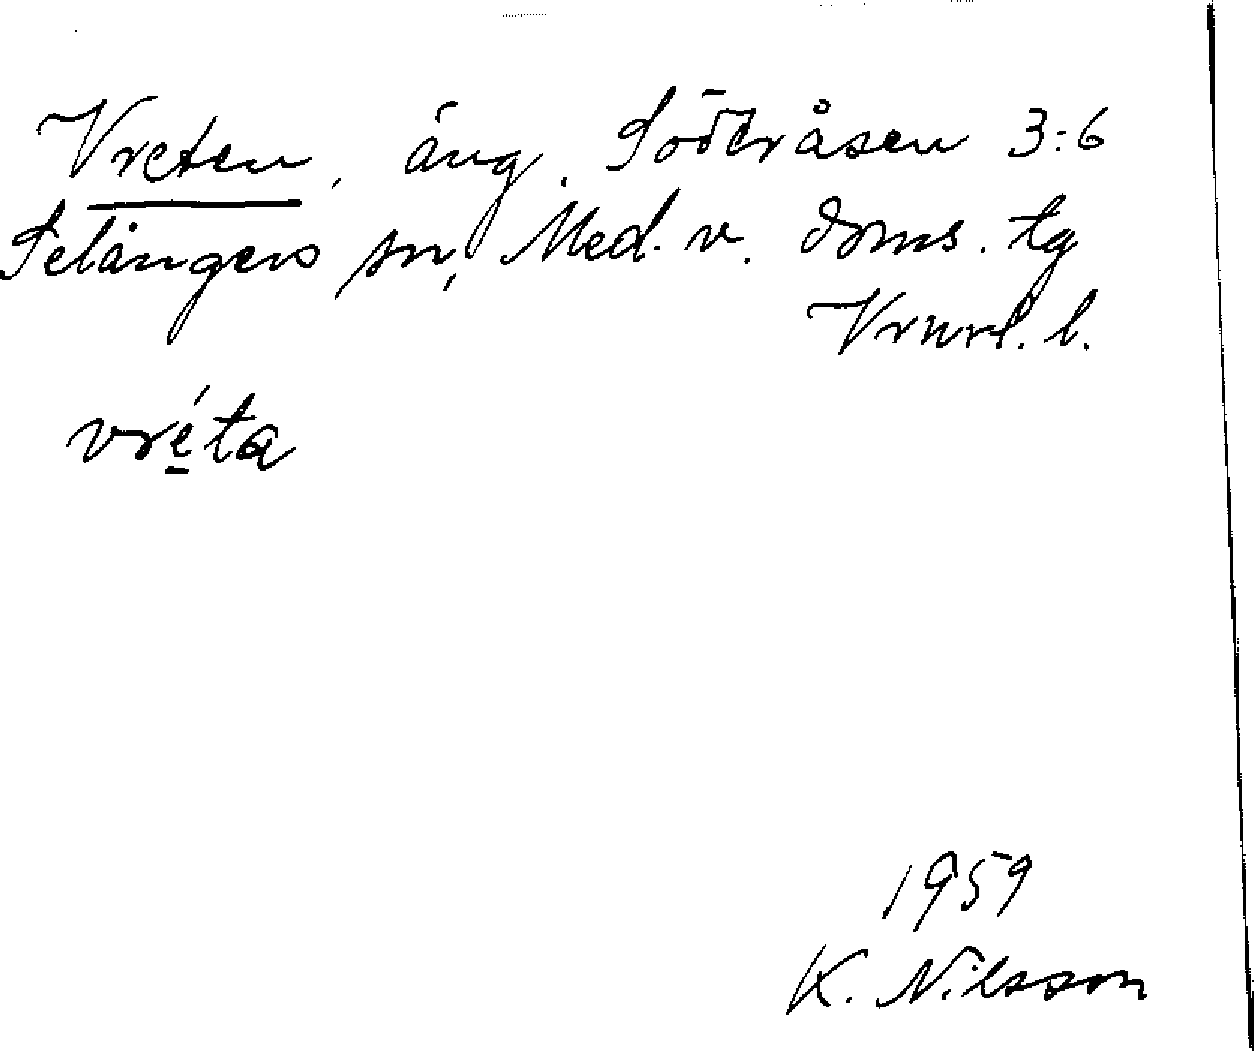 Vreten, äng. Söderåsen 3:6
Selångers sn, Med. v. doms. tg
Vrnrl. l.
vre̱´ta
1959
K. Nilsson